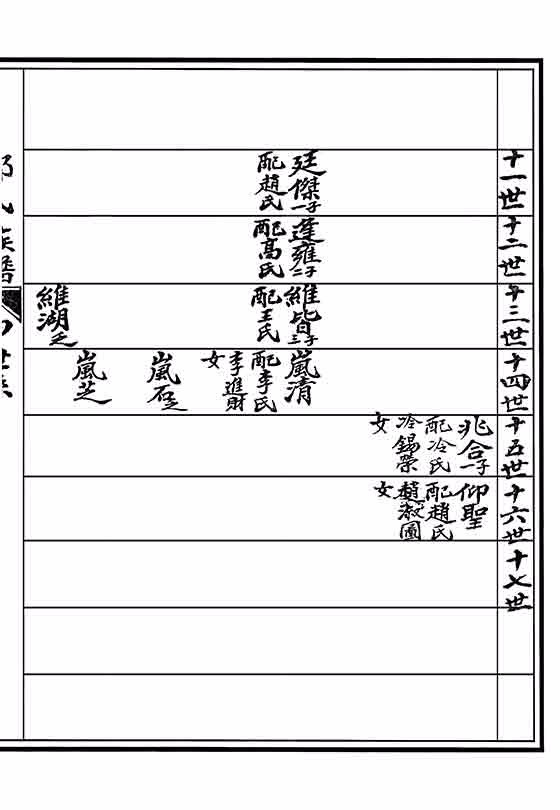 十一世
廷傑一子
配趙氏
十二世
逢雍二子
配高氏
十三世
維皆三子
配王氏
維湖乏
十四世
嵐清
配李氏
李進財
女
嵐石乏
嵐芝
十五世
兆合一子
配冷氏
冷錫榮
女
十六世
仰聖
配趙氏
趙淑圖
女
十七世
氏族譜
世系